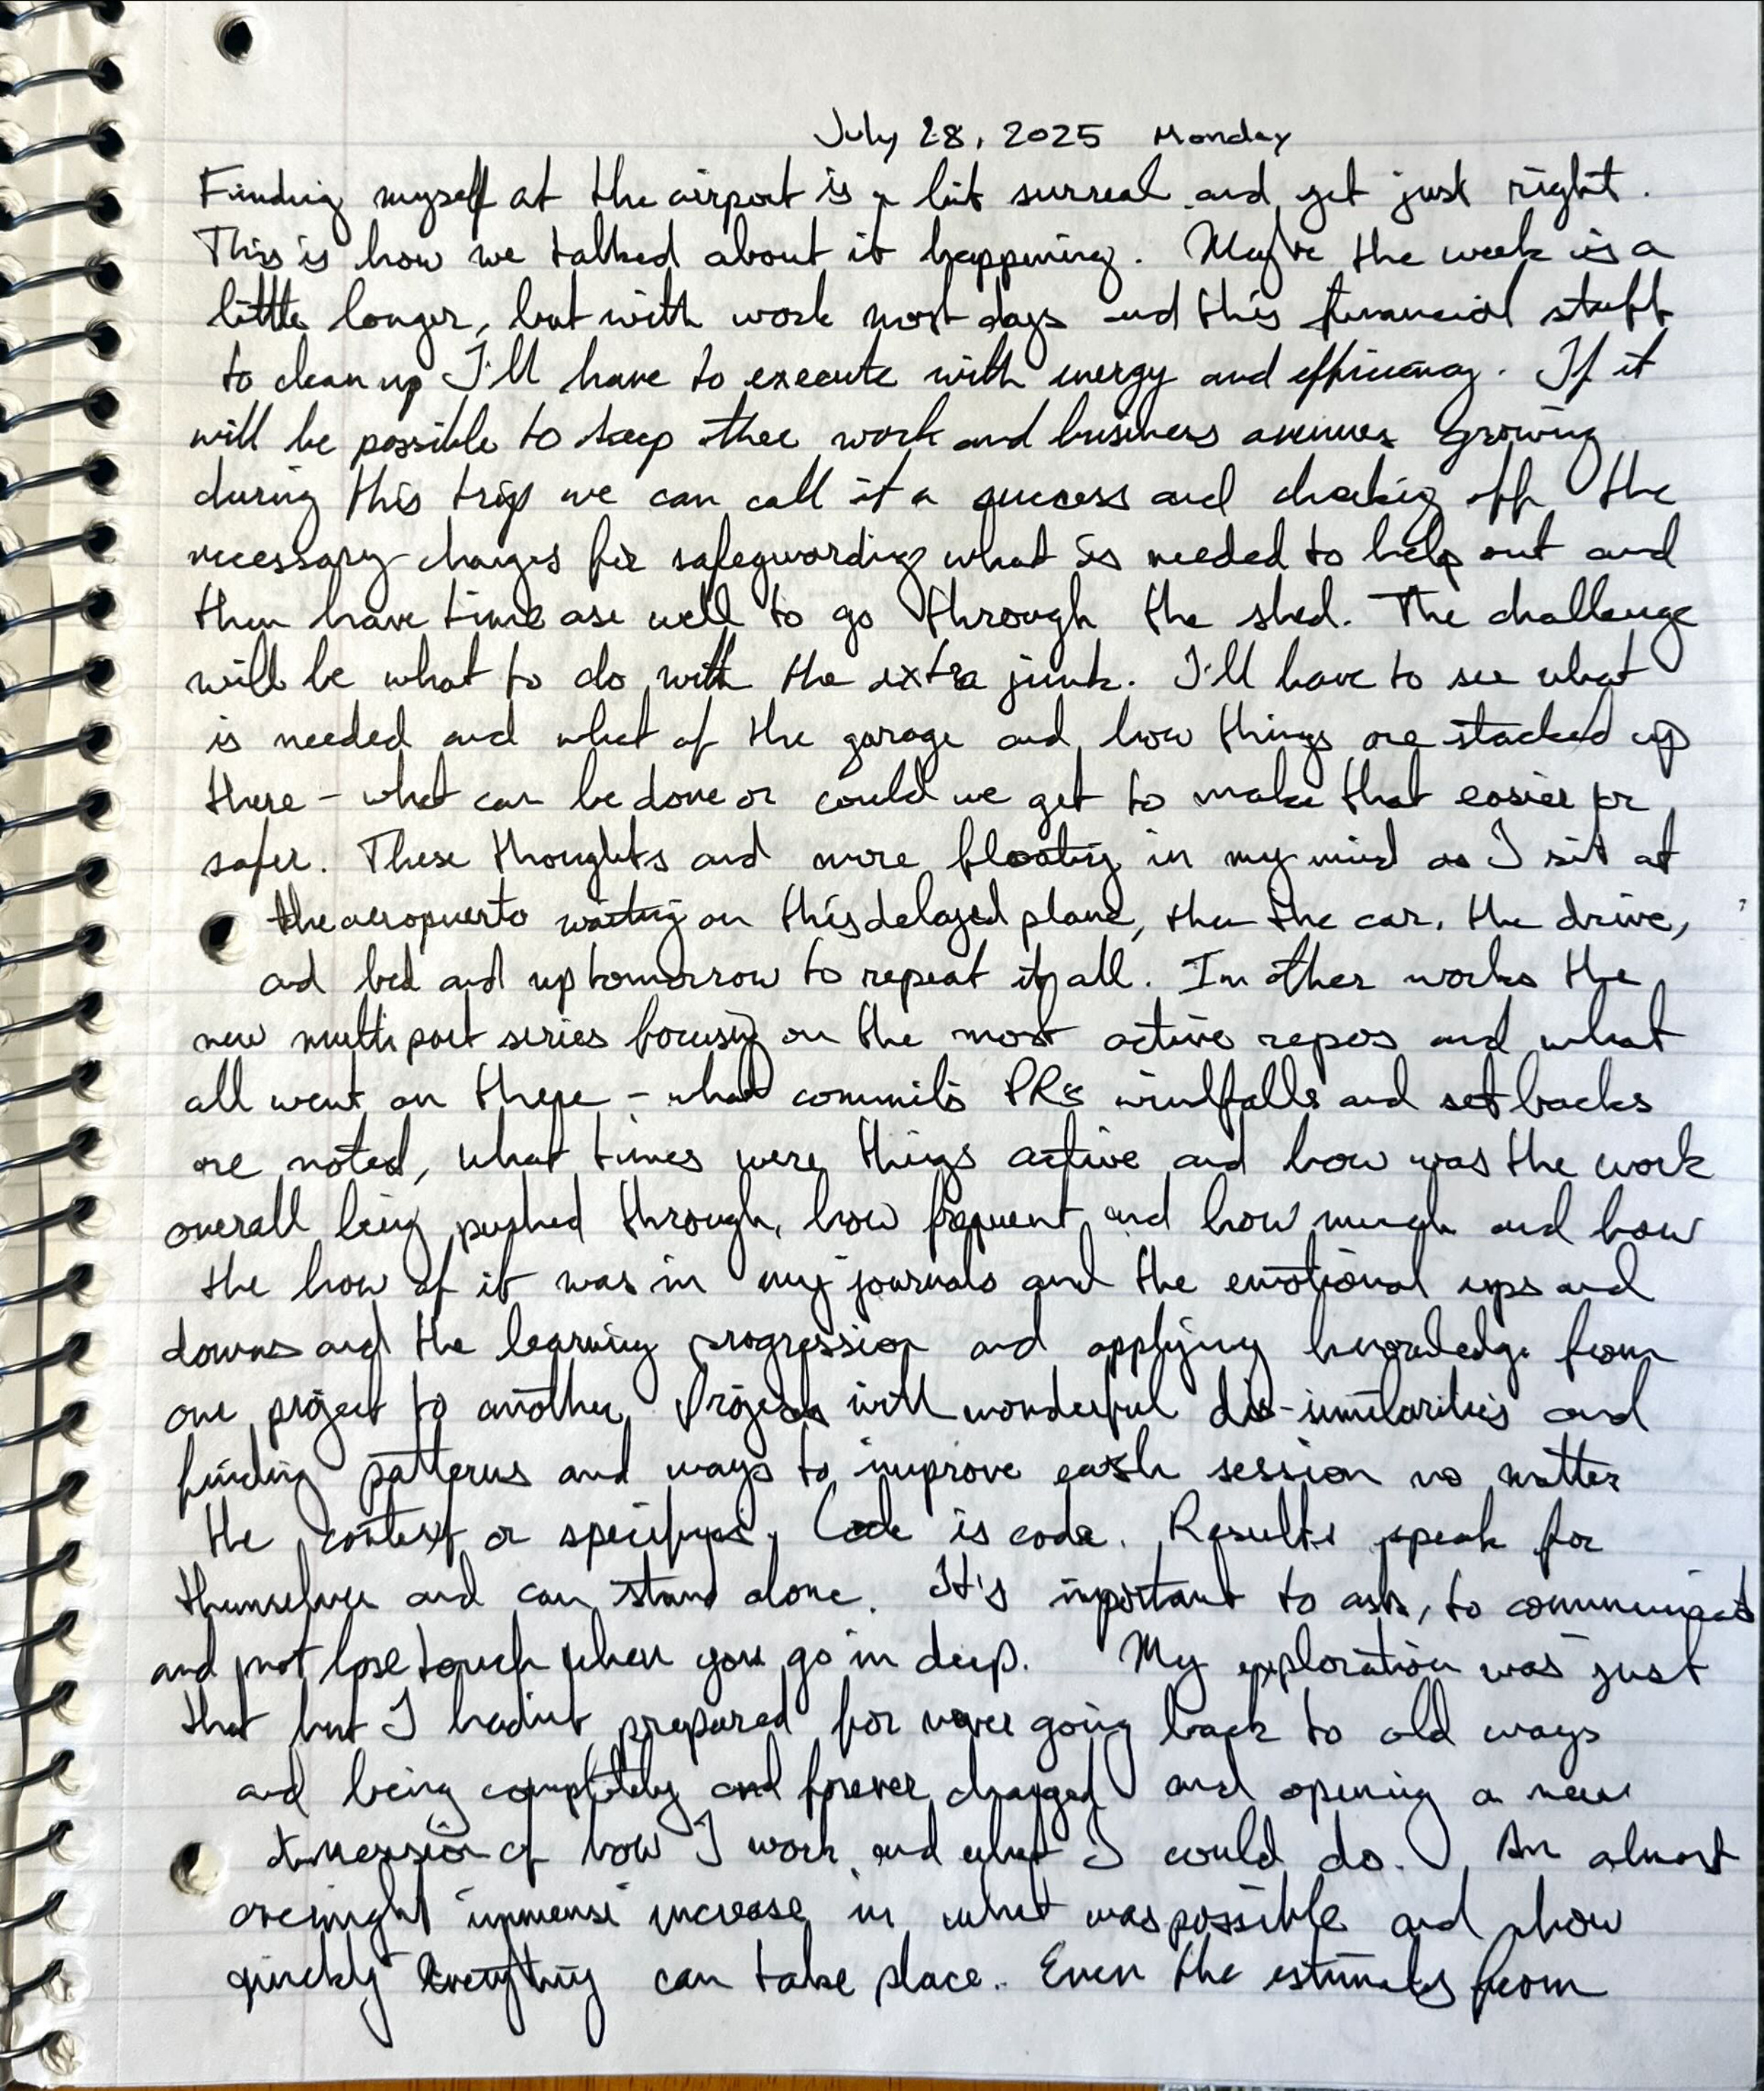 July 28, 2025 Monday
Finding myself at the airport is a bit surreal and yet just right.
This is how we talked about it happening. Maybe the week is a
little longer, but with work most days and this financial stuff
to clean up I'll have to execute with energy and efficiency. If it
will be possible to keep thee work and business avenues growing
during this trip we can call it a success and checking off the
necessary changes for safeguarding what is needed to help out and
then have time ase well to go through the shed. The challenge
will be what to do with the extra junk. I'll have to see what
is needed and what of the garage and how things are stacked up
there - what can be done or could we get to make that easier or
safer. These thoughts and more floating in my mind as I sit at
the aeropuerto waiting on this delayed plane, then the car, the drive,
and bed and up tomorrow to repeat it all. In other works the
new multi part series focusing on the most active repos and what
all went on there - what commits PRs windfalls and setbacks
are noted, what times were things active and how was the work
overall being pushed through, how frequent and how much and how
the how of it was in my journals and the emotional ups and
downs and the learning progression and applying knowledge from
one project to another. Projects with wonderful dis-similarities and
finding patterns and ways to improve each session no matter
the context or specifics. Code is code. Results speak for
themselves and can stand alone. It's important to ask, to communicate
and not lose touch when you go in deep. My exploration was just
that but I hadn't prepared for never going back to old ways
and being completely and forever changed and opening a new
dimension of how I work and what I could do. An almost
overnight immense increase in what was possible and how
quickly everything can take place.. Even the estimates from